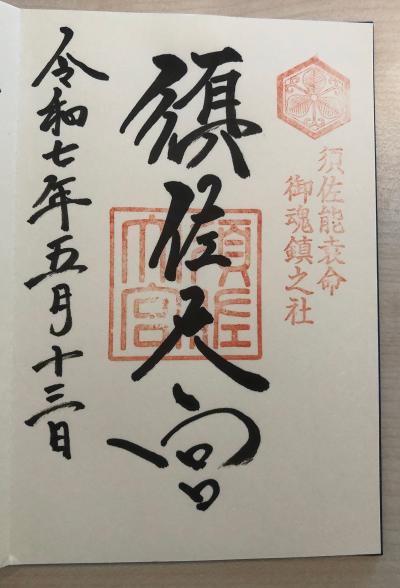 須佐能袁命
御魂鎮之社
須佐大宮
須佐大宮
令和七年五月十三日